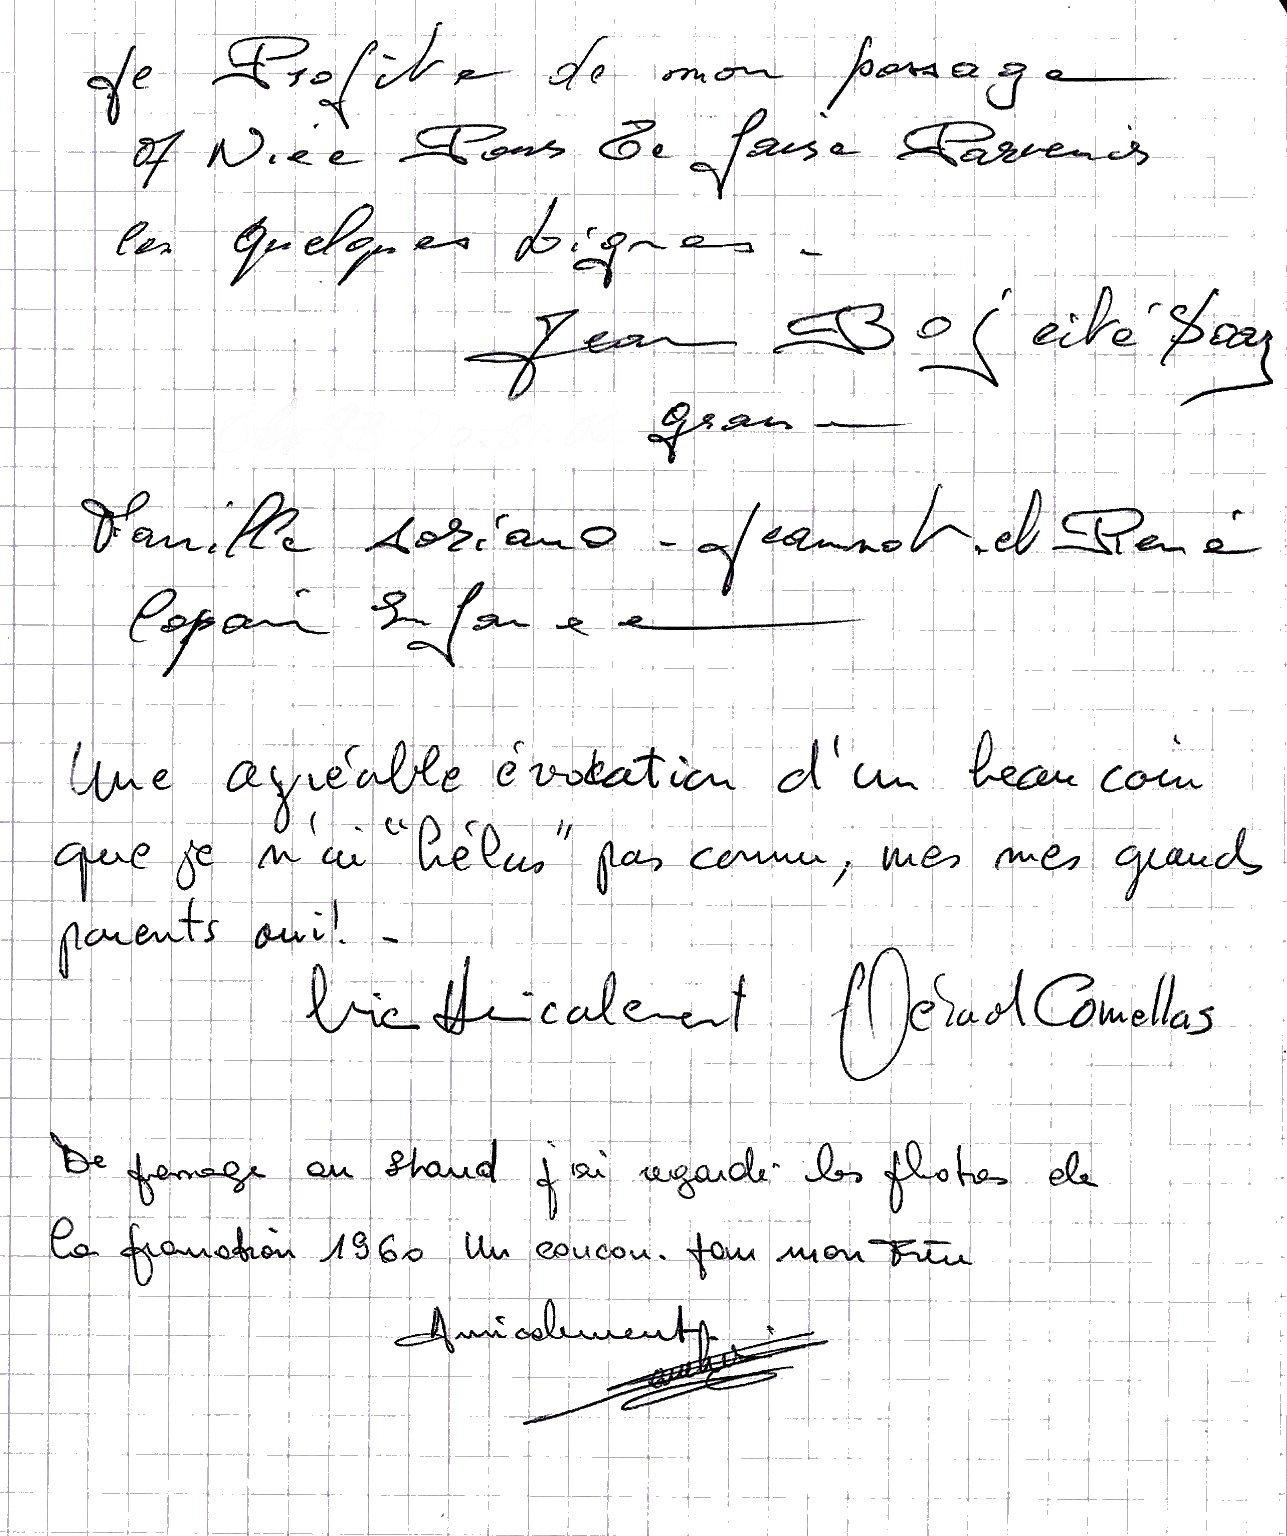 Je Profite de mon passage
a Nice Pour Te faire Parvenir
les quelques Lignes -
Jean Boj cité
gran
Famille Soriano - Jeannot et René
Copain Enfance
Une agréable évocation d'un beau coin
que je n'ai "hélas" pas connu, mes mes grands
parents oui! -
Amicalement Gérard Comellas
De passage au stand j'ai regardé les photos de
la promotion 1960 Un coucou pour mon Frère
Amicalement